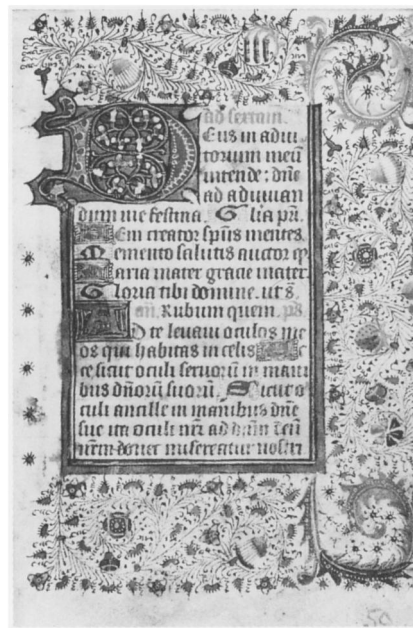 ad sextam.
Deus in adiu
torium meū
intende : dn̄e
ad adiuuan
dum me festina. Glīa pr̄i.
Veni creator spūs mentes
Memento salutis auctor q̄
Maria mater gracie mater
Gloria tibi domine. ut s̄.
an̄. Rubum quem. ps̄.
Ad te leuaui oculos me
os qui habitas in celis Ec
ce sicut oculi seruorū in manı
bus dn̄orū suorū. Sicut o
culi ancille in manibus dn̄e
sue ita oculi nr̄i ad dn̄m deū
nr̄m donec misereatur nostri
50